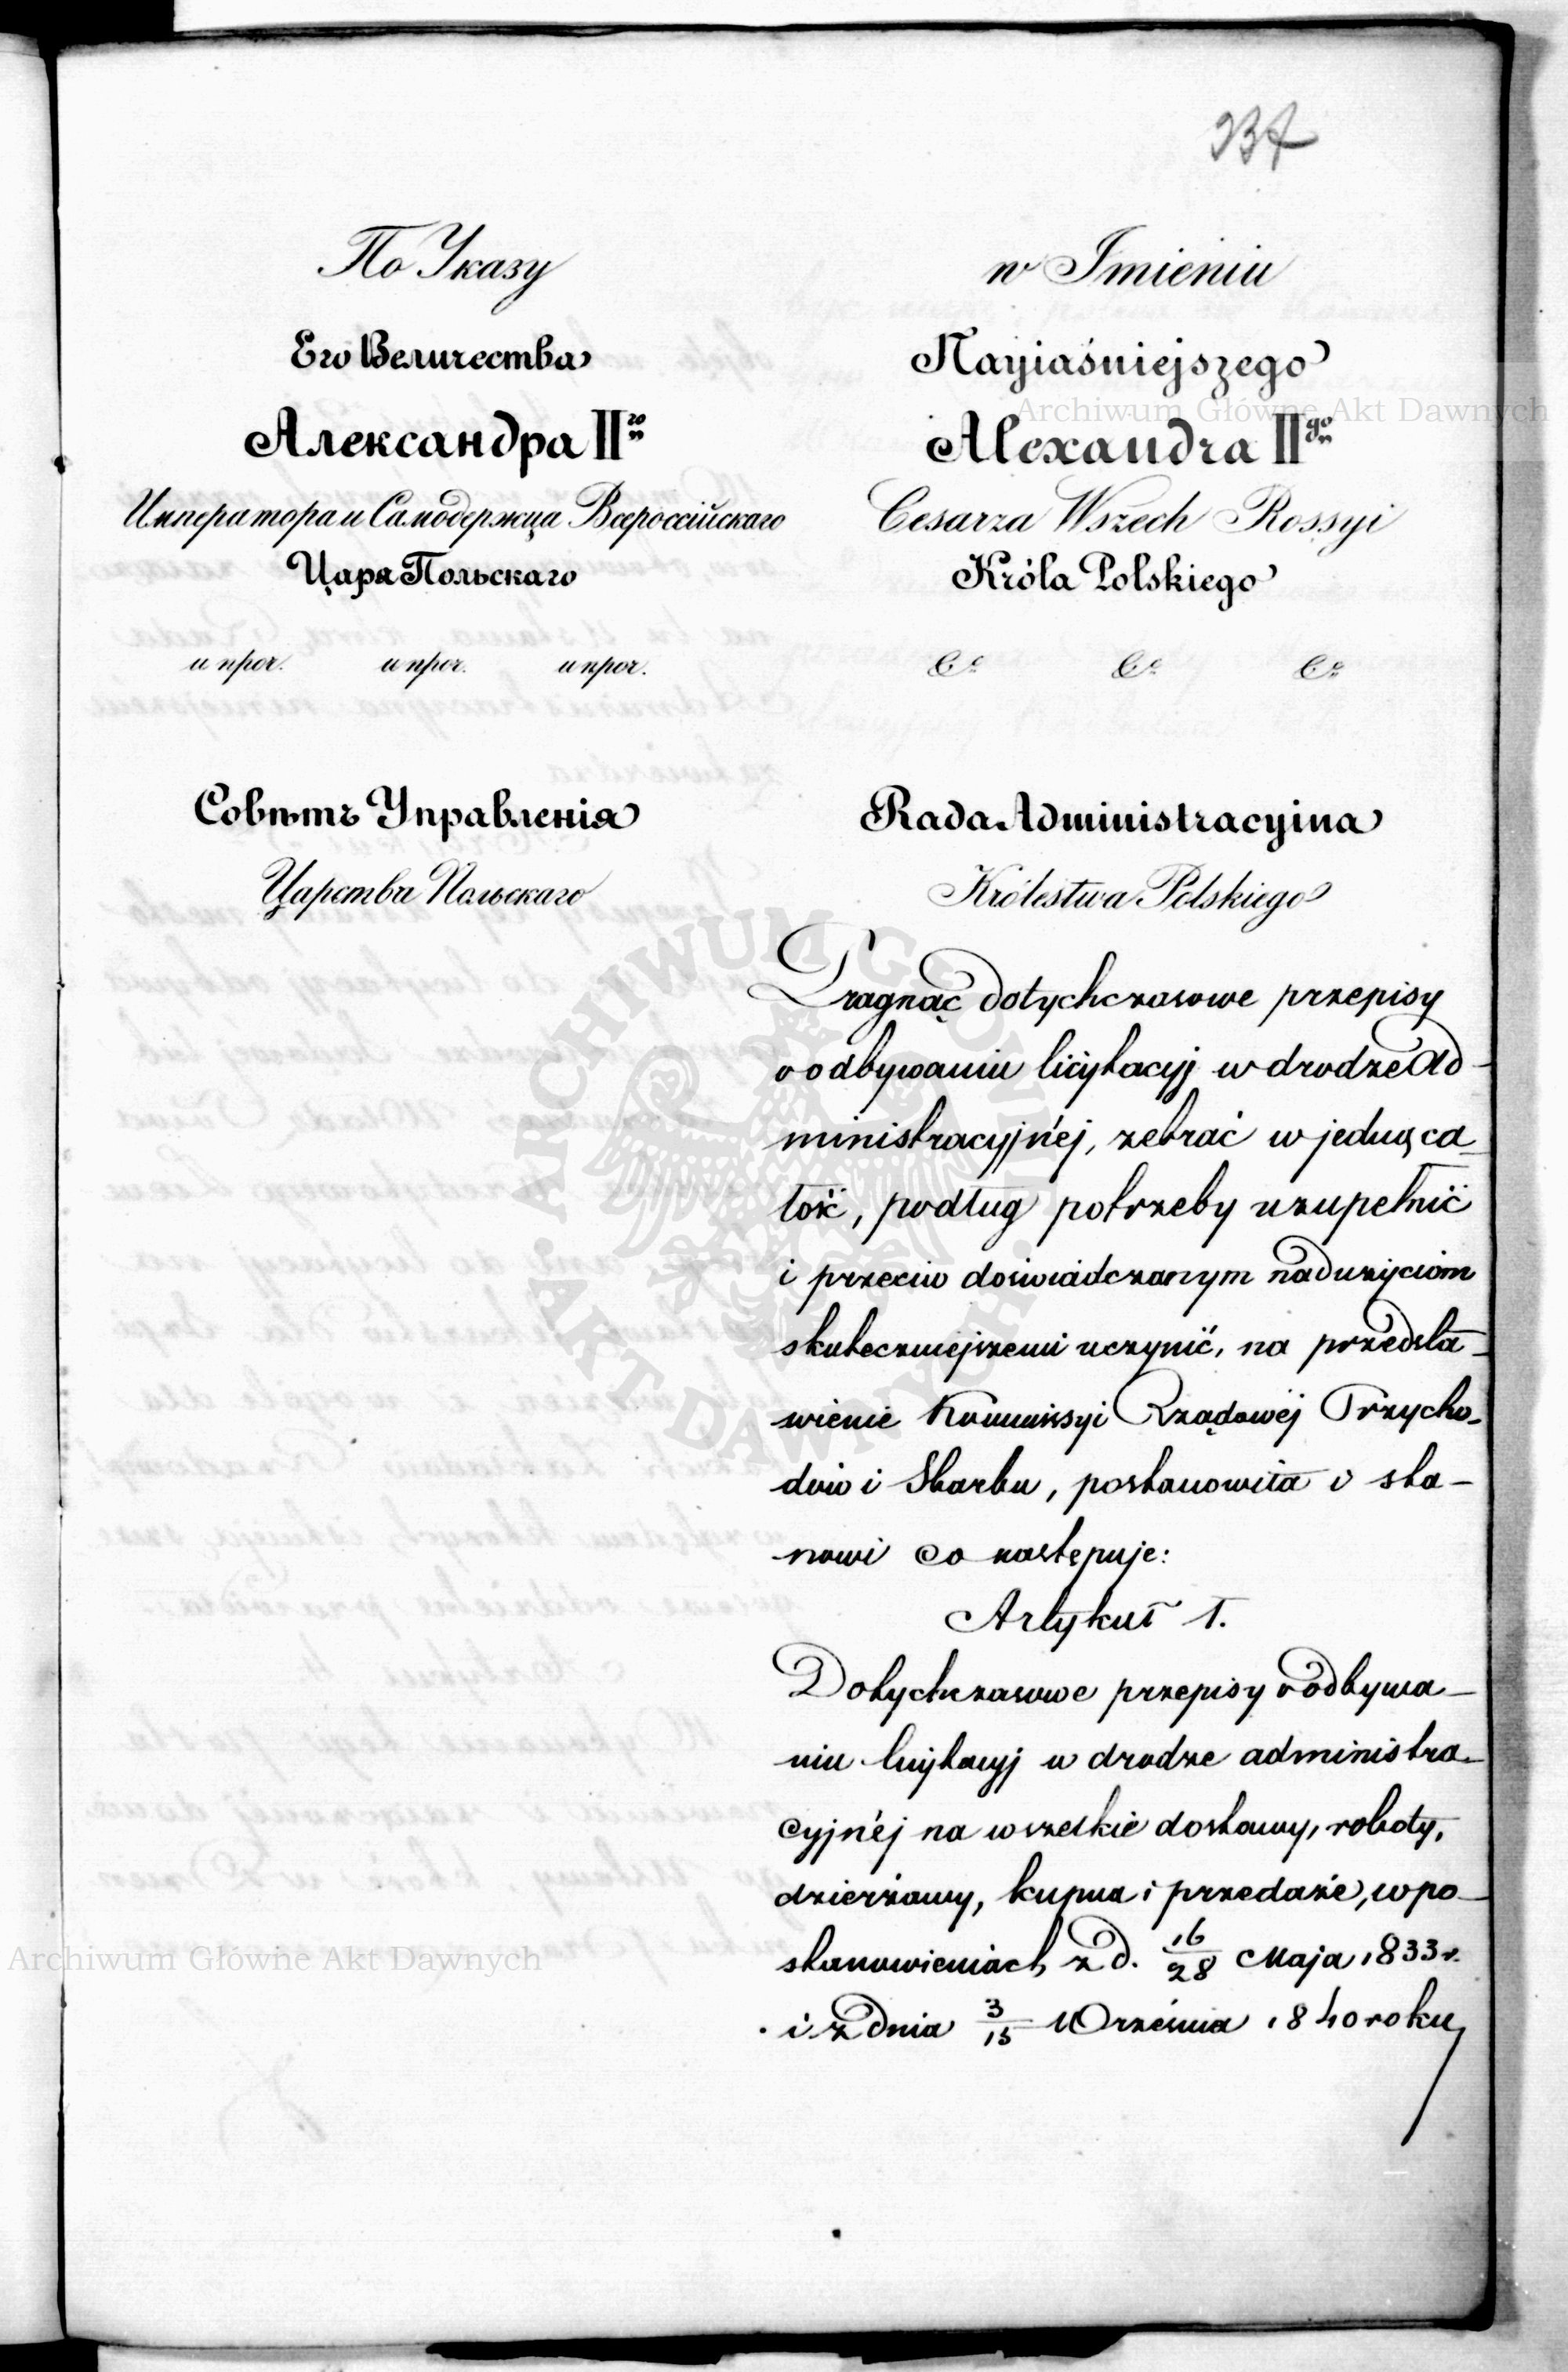 337
По Указу
Его Величества
Александра IIго
Императора и Самодержца Всероссійскаго
Царя Польскаго
и проч. и проч. и проч.
Совѣтъ Управленія
Царства Польскаго
w Imieniu
Nayiaśniejszego
Alexandra IIgo
Cesarza Wszech Rossyi
Króla Polskiego
&c &c &c
Rada Administracyina
Królestwa Polskiego
Pragnąc dotychczasowe przepisy
o odbywaniu licytacyj w drodze Ad-
ministracyjnéj, zebrać w jedną ca-
łość, podług potrzeby uzupełnić
i przeciw doświadczanym nadużyciom
skuteczniejszemi uczynić, na przedsta-
wienie Kommissyi Rządowéj Przycho-
dów i Skarbu, postanowiła i sta-
nowi co następuje:
Artykuł 1.
Dotychczasowe przepisy o odbywa-
niu licytacyj w drodze administra-
cyjnéj na wszelkie dostawy, roboty,
dzierżawy, kupna i przedaże, w po-
stanowieniach z d. 16/28 Maja 1833 r.
i z dnia 3/15 Września 1840 roku
Archiwum Główne Akt Dawnych
Archiwum Główne Akt Dawnych
ARCHIWUM GŁÓWNE
AKT DAWNYCH